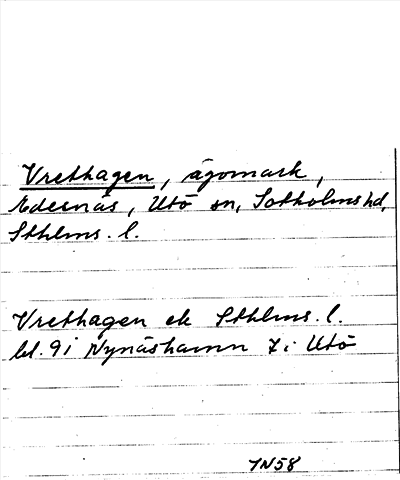 Vrethagen, ägomark,
Edesnäs, Utö sn, Sotholms hd,
Sthlms. l.
Vrethagen ek Sthlms. l.
bl. 9 i Nynäshamn 7 i Utö
JN58